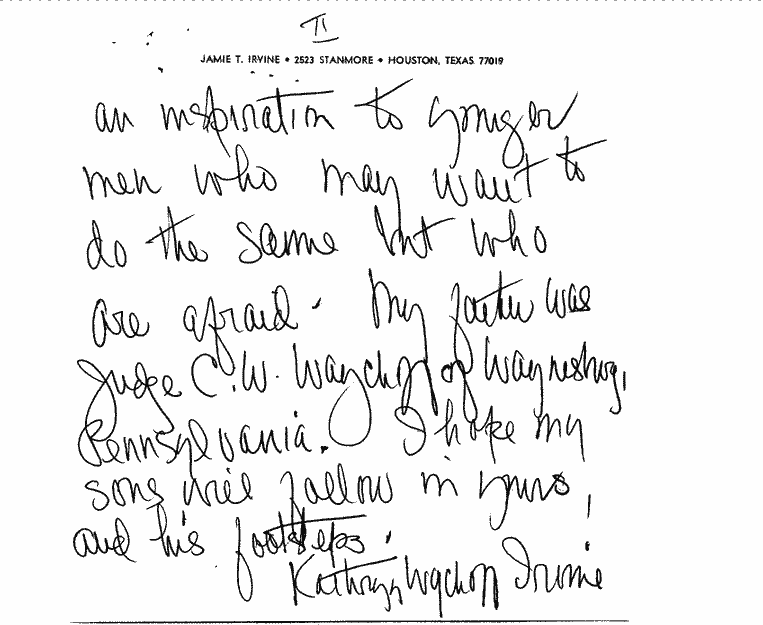 II
JAMIE T. IRVINE • 2523 STANMORE • HOUSTON, TEXAS 77019
an inspiration to younger
men who may want to
do the same but who
are afraid. My father was
Judge C. W. Waychoff of Waynesburg,
Pennsylvania. I hope my
sons will follow in yours,
and his footsteps.
Kathryn Waychoff Irvine